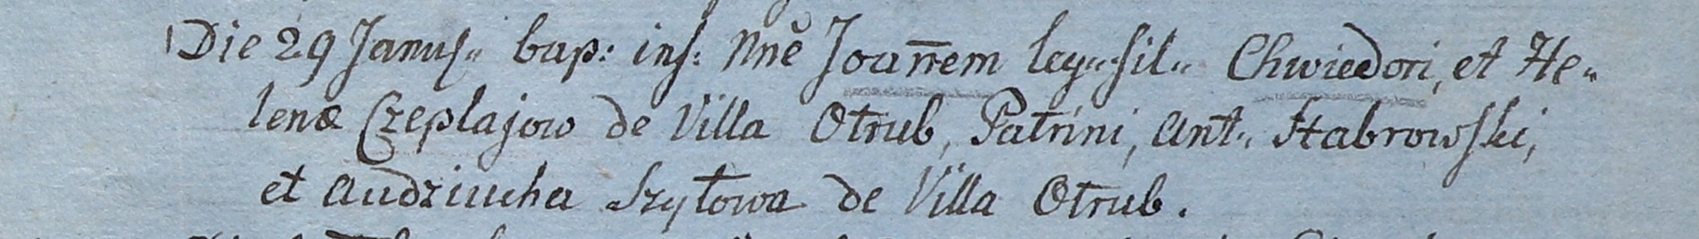 Die 29 Janus„ bap: inf: Nnē Joan̄em leg„ fil„ Chwiedori, et He„
lenæ Czeplajow de Villa Otrub, Patrini, Ant„ Habrowski,
et Audziucha Szytowa de Villa Otrub.